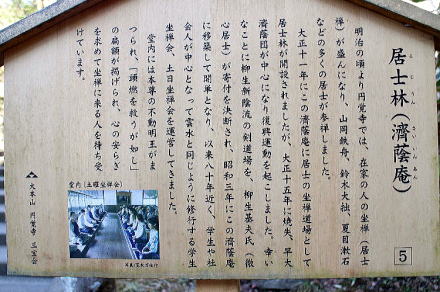 居士林（濟蔭庵）
こじりん
さいいんあん
明治の頃より円覚寺では、在家の人の坐禅（居士
禅）が盛んになり、山岡鉄舟、鈴木大拙、夏目漱石
などの多くの居士が参禅しました。
大正十一年にこの濟蔭庵に居士の坐禅道場として
居士林が開設されましたが、大正十五年に焼失、早大
濟蔭団が中心になり復興運動を起こしました。幸い
なことに柳生新陰流の剣道場を、柳生基夫氏（徹
心居士）が寄付を決断され、昭和三年にこの濟蔭庵
に移築して開単となり、以来八十年近く、学生や社
会人が中心となって雲水と同じように修行する学生
坐禅会、土日坐禅会を運営してきました。
堂内には本尊の不動明王がま
つられ、「頭燃を救うが如し」
の扁額が掲げられ、心の安らぎ
を求めて坐禅に来る人を待ち受
けています。
大本山 円覚寺 三宝会
堂内（土曜坐禅会）
5